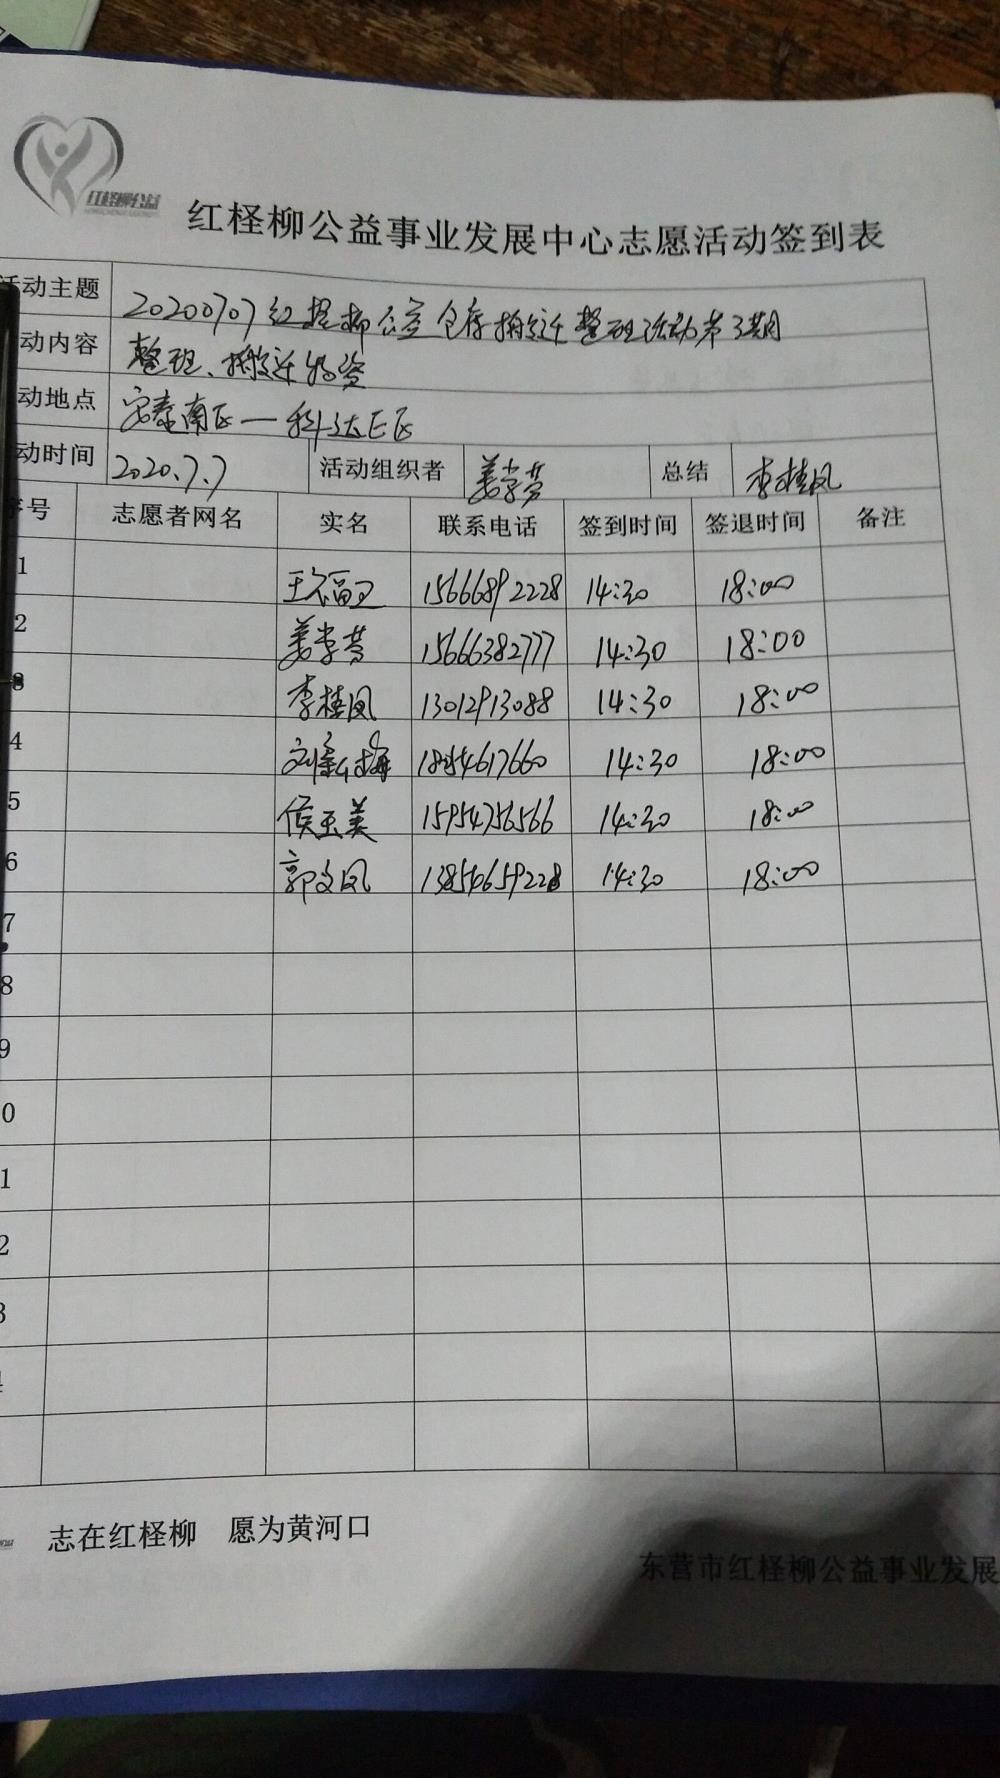 红柽柳公益
红柽柳公益事业发展中心志愿活动签到表
活动主题 20200707红柽柳公益仓存搬迁整理活动第3期
动内容 整理、搬迁物资
动地点 安泰南区—科达E区
动时间 2020.7.7 活动组织者 姜学芳 总结 李桂凤
序号 志愿者网名 实名 联系电话 签到时间 签退时间 备注
1 15666892228 14:30 18:00
2 姜学芳 15666382777 14:30 18:00
3 李桂凤 13012913088 14:30 18:00
4 14:30 18:00
5 侯玉美 15954756566 14:30 18:00
6 郭文凤 13854659228 14:30 18:00
7
8
9
0
1
2
3
4
志在红柽柳 愿为黄河口
东营市红柽柳公益事业发展